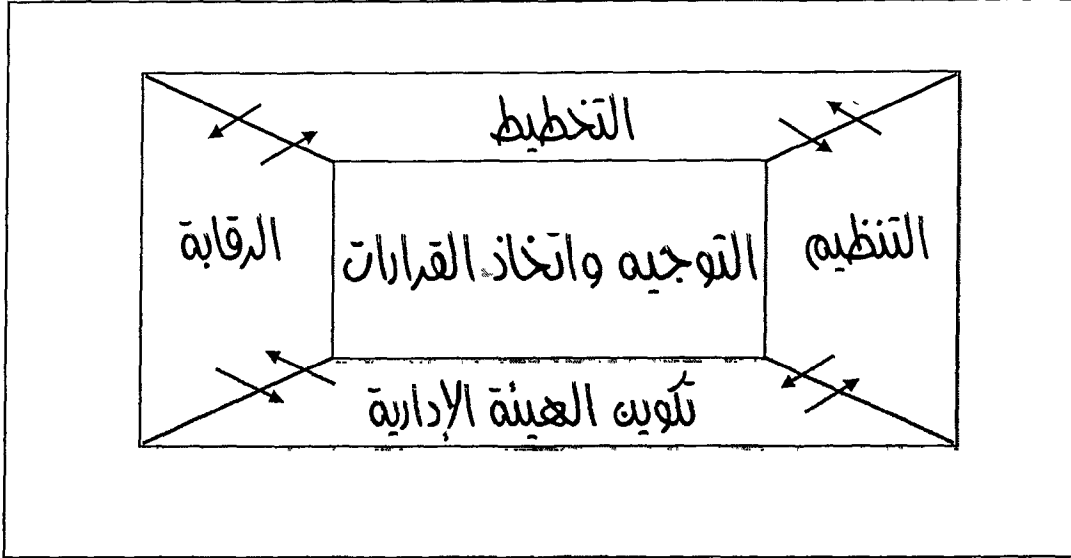 التخطيط
التنظيم
التوجيه واتخاذ القرارات
الرقابة
تكوين الهيئة الإدارية